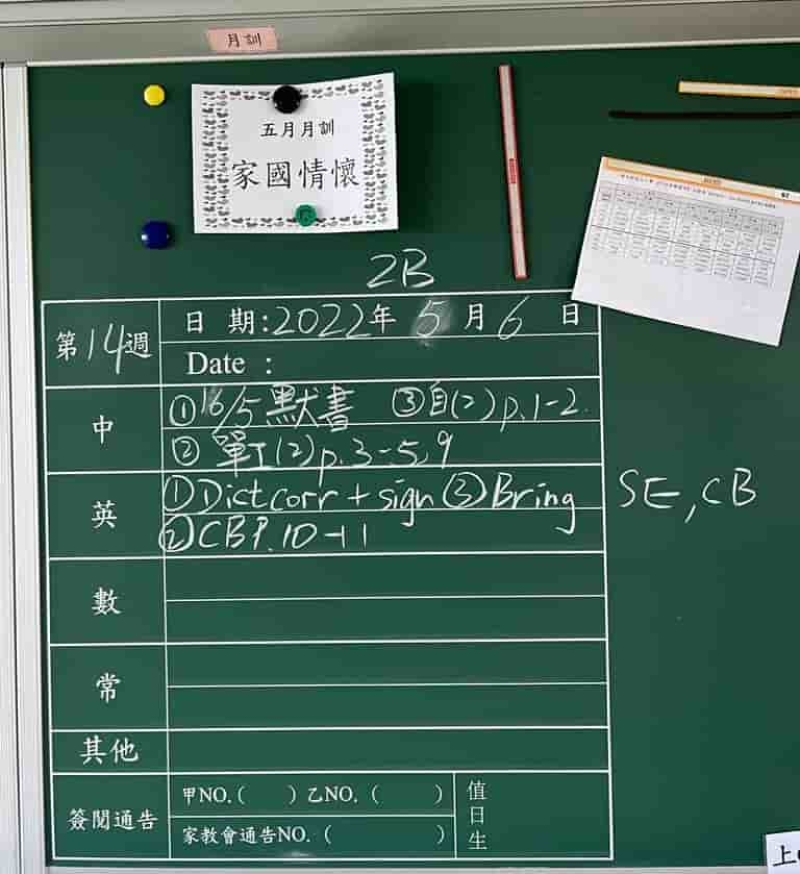 月訓
五月月訓
家國情懷
2B
第14週
日 期:2022年 5 月 6 日
Date :
中
①16/5默書 ③自(2)p.1-2.
② 單工(2)p.3-5,9
英
①Dict corr + sign ③Bring SE, CB
②CB P.10-11
數
常
其他
簽閱通告
甲NO.( ) 乙NO. ( )
家教會通告NO. ( )
值日生
上